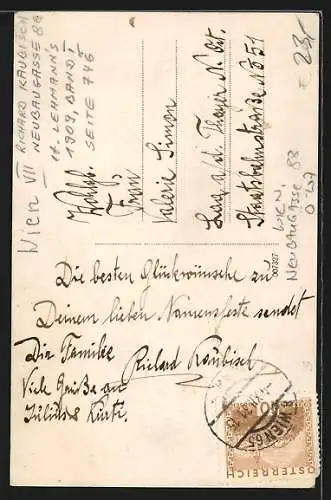 Wien VII
RICHARD KAUBISCH
NEUBAUGASSE 88
lt. LEHMANN'S
1909, BAND I
SEITE 746
23,-
Wohlg.
Frau
Valerie Simon
Laa a/d. Thaya N. Öst.
Staatsbahnstraße No 51
WIEN,
NEUBAUGASSE 88
007327
Die besten Glückwünsche zu
Deinem lieben Namensfeste sendet
Die Familie Richard Kaubisch
Viele Grüße an
Julius u. Kurti.
WIEN 65
ÖSTERREICH